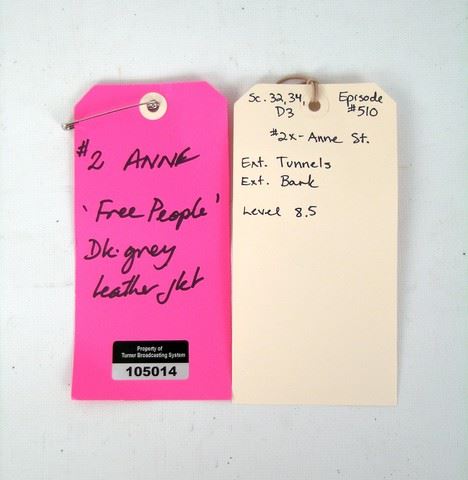 #2 ANNE
'Free People'
Dk. grey
leather jkt
Property of
Turner Broadcasting System
105014
Sc. 32, 34, Episode
D3 #510
#2x- Anne St.
Ext. Tunnels
Ext. Bank
Level 8.5